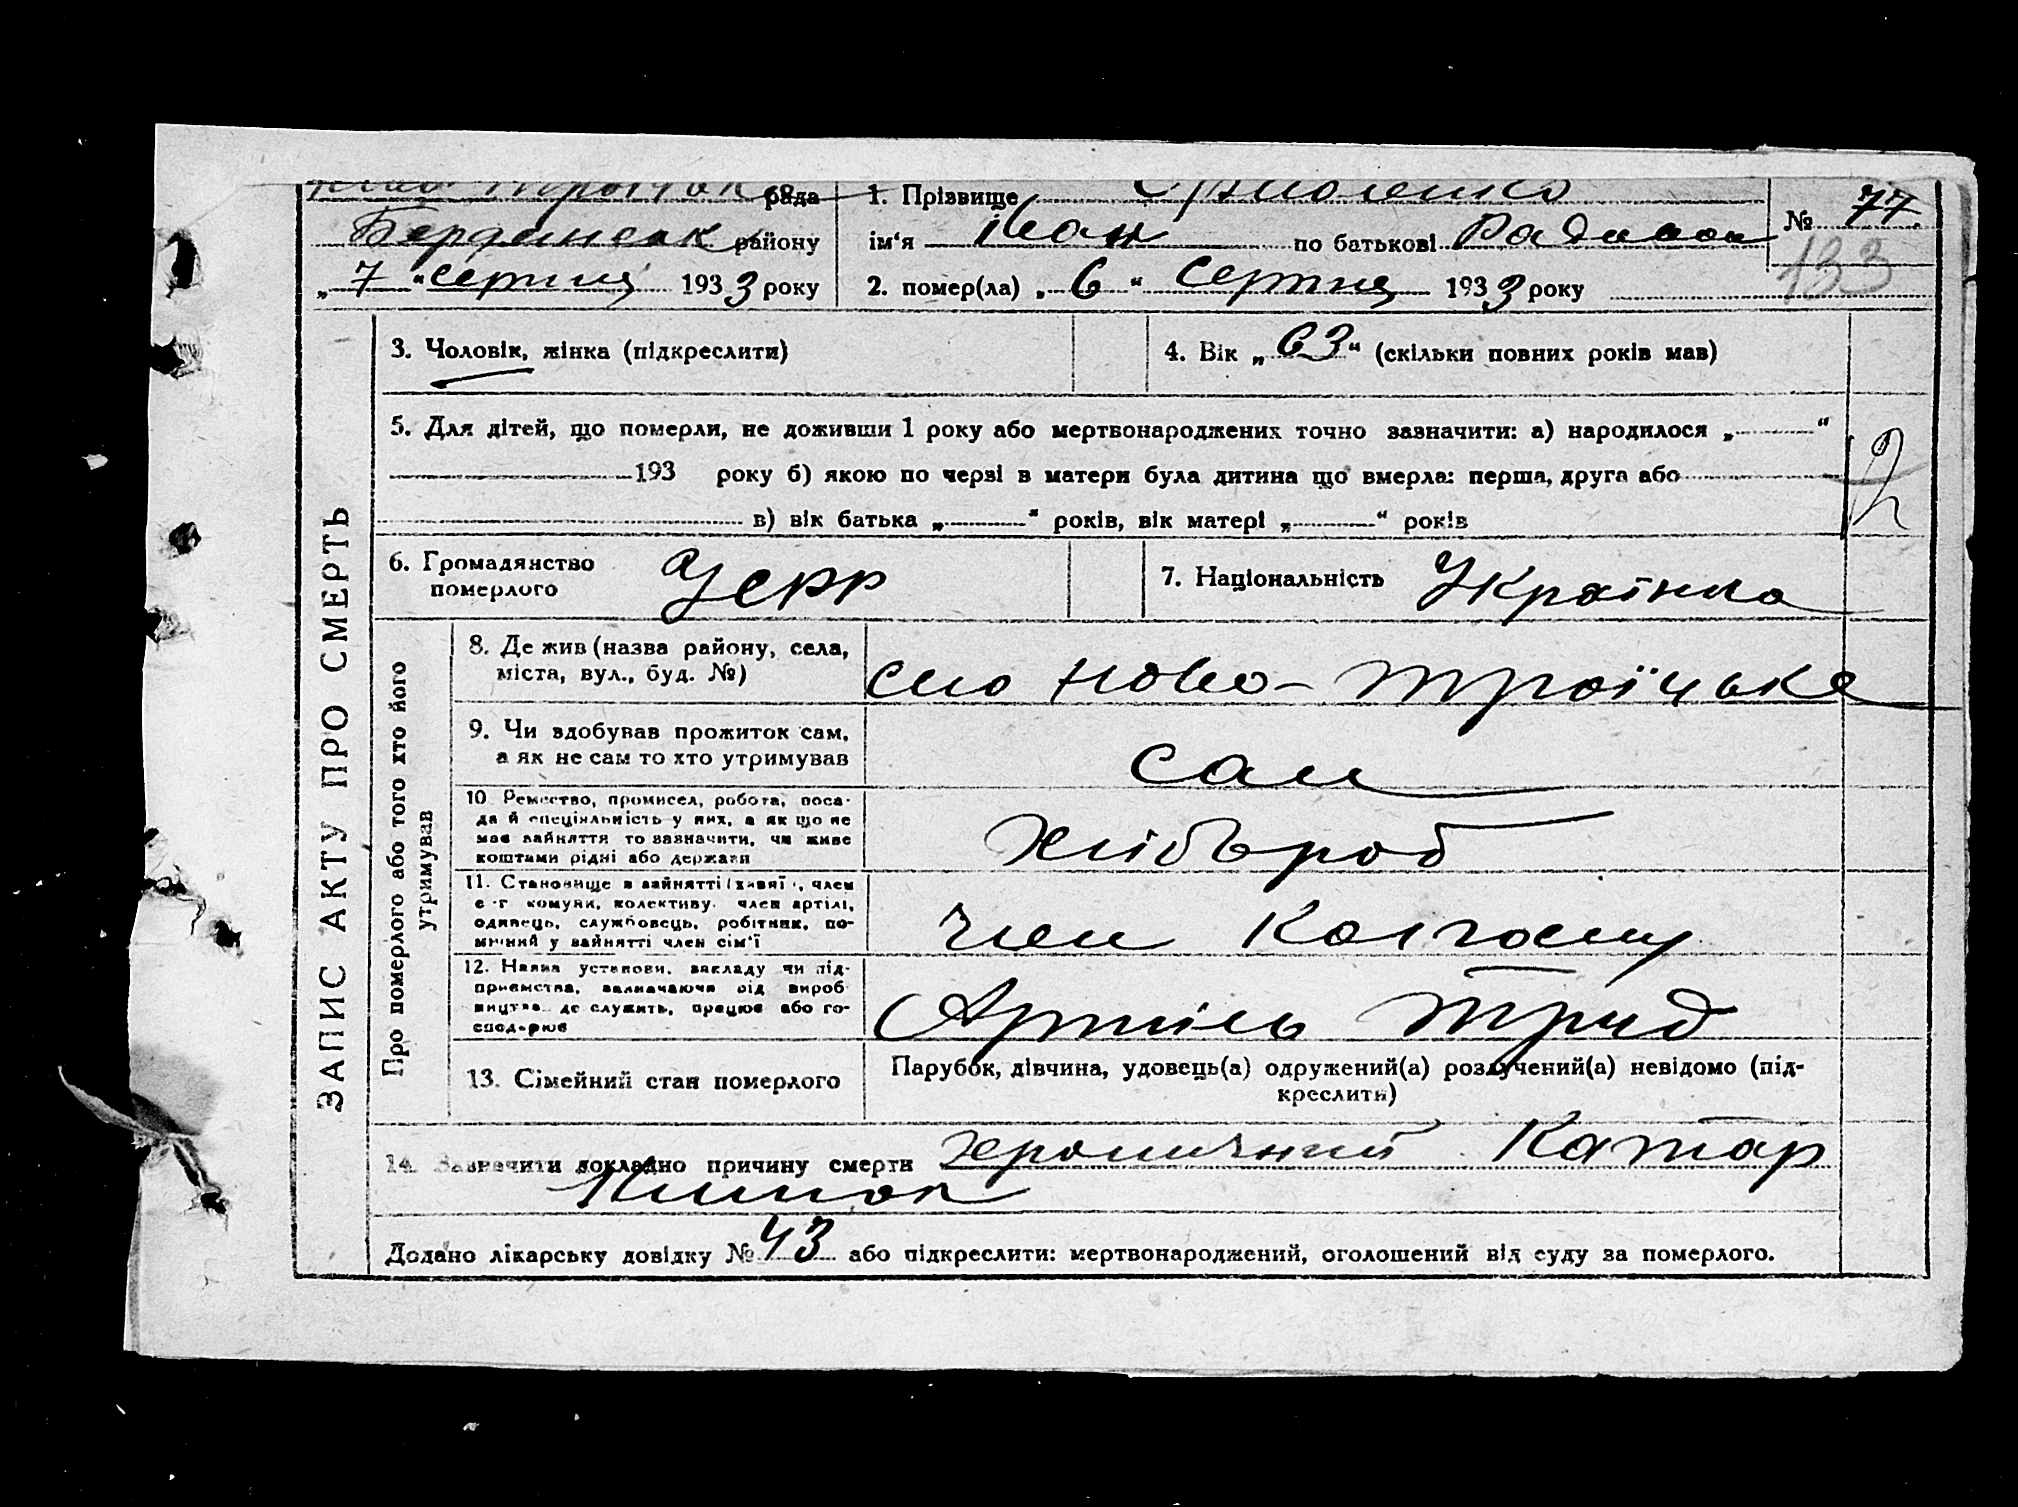 рада
Бердянськ району
„ 7 “ серпня 1933 року
1. Прізвище
ім‘я Іван по батькові
2. помер(ла) „ 6 “ серпня 1933 року
№ 77
133
ЗАПИС АКТУ ПРО СМЕРТЬ
3. Чоловік, жінка (підкреслити)
4. Вік „ 63 “ (скільки повних років мав)
5. Для дітей, що померли, не доживши 1 року або мертвонароджених точно зазначити: а) народилося „ “
193 року б) якою по черзі в матери була дитина що вмерла: перша, друга або
в) вік батька „ “ років, вік матері „ “ років
6. Громадянство
померлого УСРР
7. Національність Українка
Про померлого або того хто його
утримував
8. Де жив (назва району, села,
міста, вул., буд. №)
село Ново-Троїцьке
9. Чи здобував прожиток сам,
а як не сам то хто утримував
сам
10. Ремество, промисел, робота, поса-
да й спеціяльність у них, а як що не
має зайняття то зазначити, чи живе
коштами рідні або держави
хлібороб
11. Становище в зайнятті (хазяї , член
с-г комуни, колективу, член артілі,
одинець, службовець, робітник, по-
мічний у зайнятті член сім‘ї
член колгоспу
12. Назва установи, закладу чи під-
приємства, зазначаючи рід вироб-
ництва де служить, працює або го-
сподарює
Артіль Труд
13. Сімейний стан померлого
Парубок, дівчина, удовець(а) одружений(а) розлучений(а) невідомо (під-
креслити)
14. Зазначити докладно причину смерти хроничний катар
кишок
Додано лікарську довідку № 43 або підкреслити: мертвонароджений, оголошений від суду за померлого.